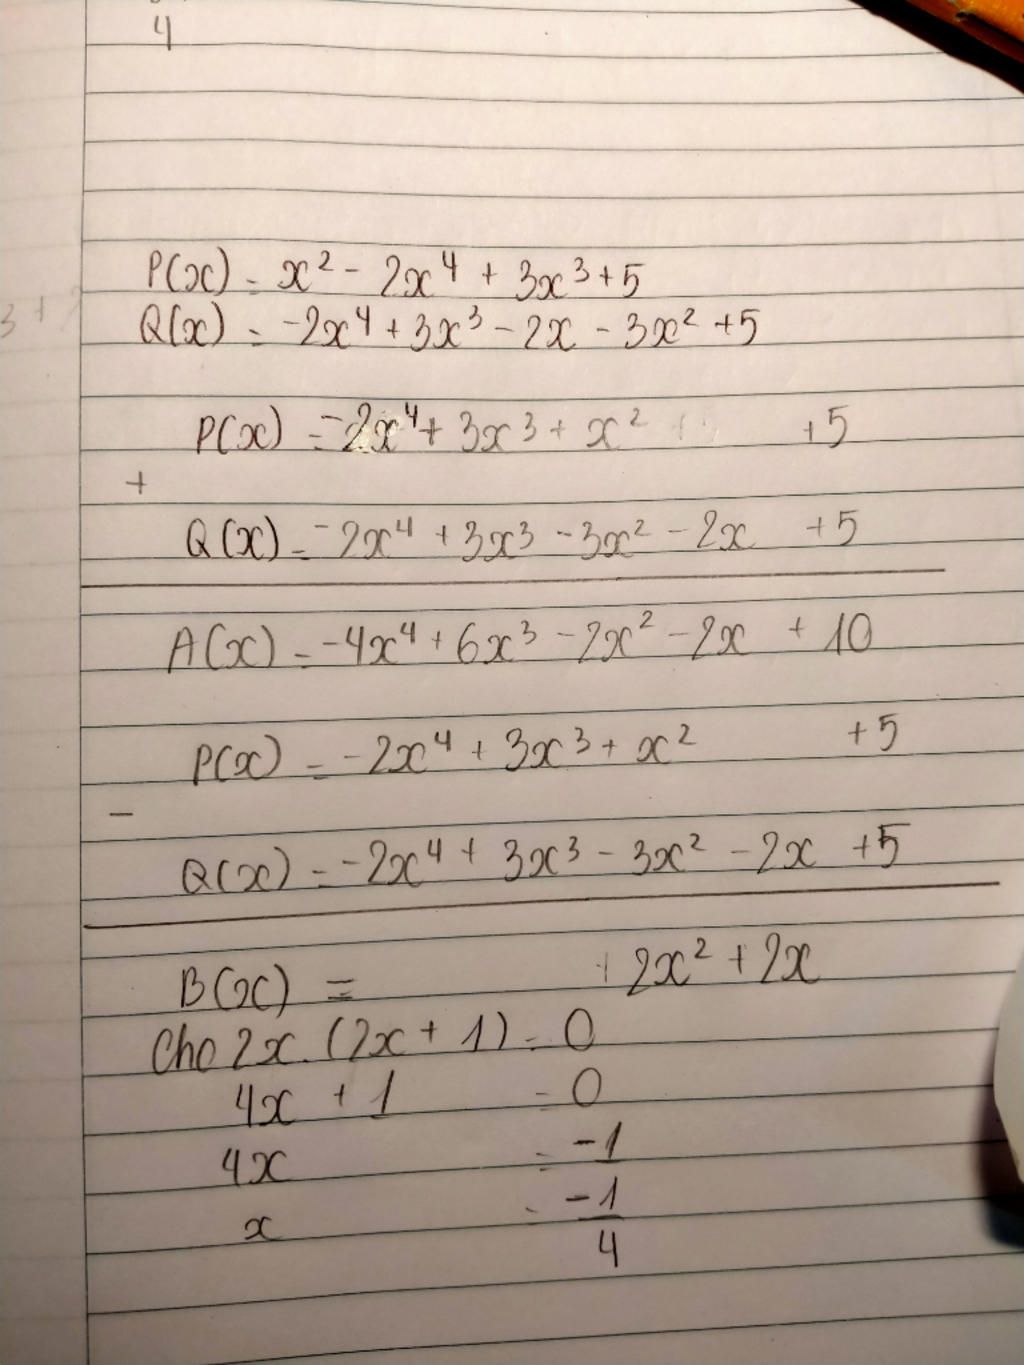 4
P(x) = x² - 2x⁴ + 3x³ + 5
Q(x) = -2x⁴ + 3x³ - 2x - 3x² + 5
P(x) = -2x⁴ + 3x³ + x² + 5
+
Q(x) = -2x⁴ + 3x³ - 3x² - 2x + 5
A(x) = -4x⁴ + 6x³ - 2x² - 2x + 10
P(x) = -2x⁴ + 3x³ + x² + 5
-
Q(x) = -2x⁴ + 3x³ - 3x² - 2x + 5
B(x) = + 2x² + 2x
Cho 2x.(2x + 1) = 0
4x + 1 = 0
4x = -1
x = -1
4